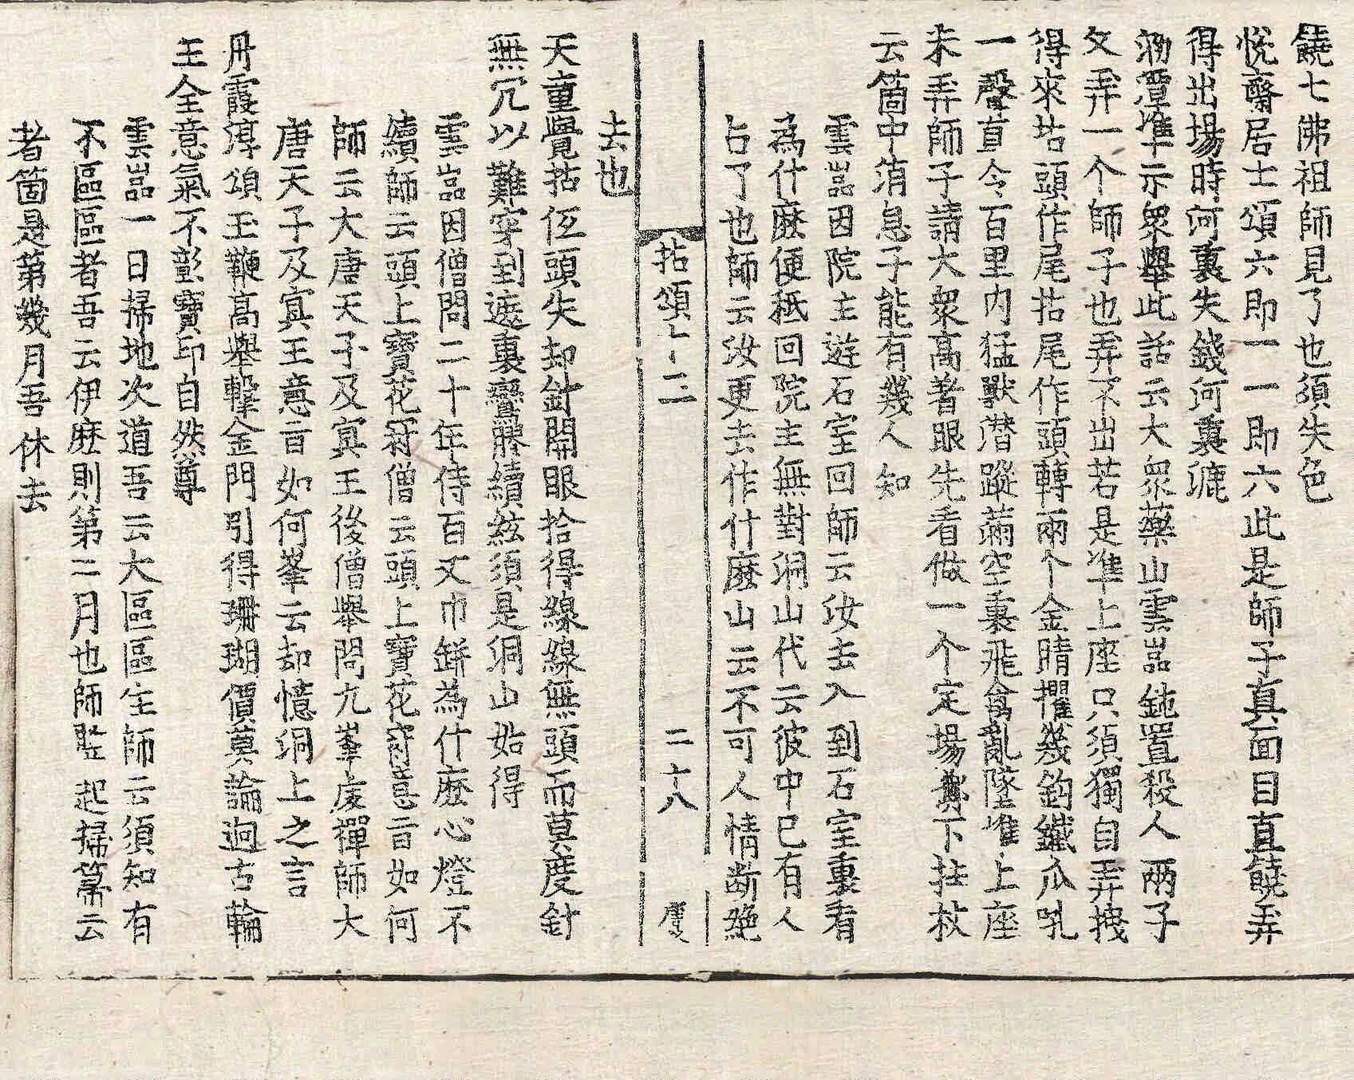 饒七佛祖師見了也須失色
悅齋居士頌六即一一即六此是師子真面目直饒弄
得出場時河裏失錢河裏漉
泐潭準示眾舉此話云大眾藥山雲嵓鈍置殺人兩子
父弄一个師子也弄不出若是準上座只須獨自弄拽
得來拈頭作尾拈尾作頭轉兩个金睛攫幾鈎鐵爪吼
一聲直令百里內猛獸潛蹤滿空裏飛禽亂墜準上座
未弄師子請大眾高著眼先看做一个定場擲下拄杖
云箇中消息子能有幾人知
雲嵓因院主遊石室回師云汝去入到石室裏看
為什麽便秪回院主無對洞山代云彼中已有人
占了也師云汝更去作什麽山云不可人情斷絕
去也
拈頌七 二
二十八
天童覺拈伍頭失却針開眼拾得線線無頭而莫度針
無冗以難穿到遮裏鸞膠續絃須是洞山始得
雲嵓因僧問二十年侍百丈巾缾為什麽心燈不
續師云頭上寶花冠僧云頭上寶花冠意旨如何
師云大唐天子及冥王後僧舉問九峯虔禪師大
唐天子及冥王意旨如何峯云却憶洞上之言
丹霞淳頌玉鞭高舉擊金門引得珊瑚價莫論迥古輪
王全意氣不彰寶印自然尊
雲嵓一日掃地次道吾云大區區生師云須知有
不區區者吾云伊麽則第二月也師竪起掃箒云
者箇是第幾月吾休去